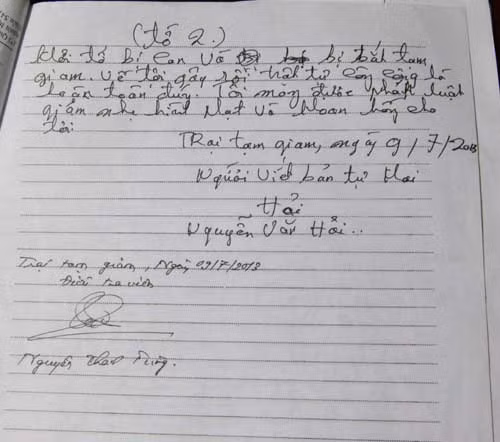 (tố 2.)
khởi tố bị can và bị bắt tạm
giam. về tội gây rối trật tự công cộng là
hoàn toàn đúng. Tôi mong được pháp luật
giảm nhẹ hình phạt và khoan hồng cho
tôi
Trại tạm giam, ngày 9/7/2013
Người viết bản tự khai
Hải
Nguyễn Văn Hải..
Trại tạm giam, Ngày 09/7/2013
Điều tra viên
Nguyễn